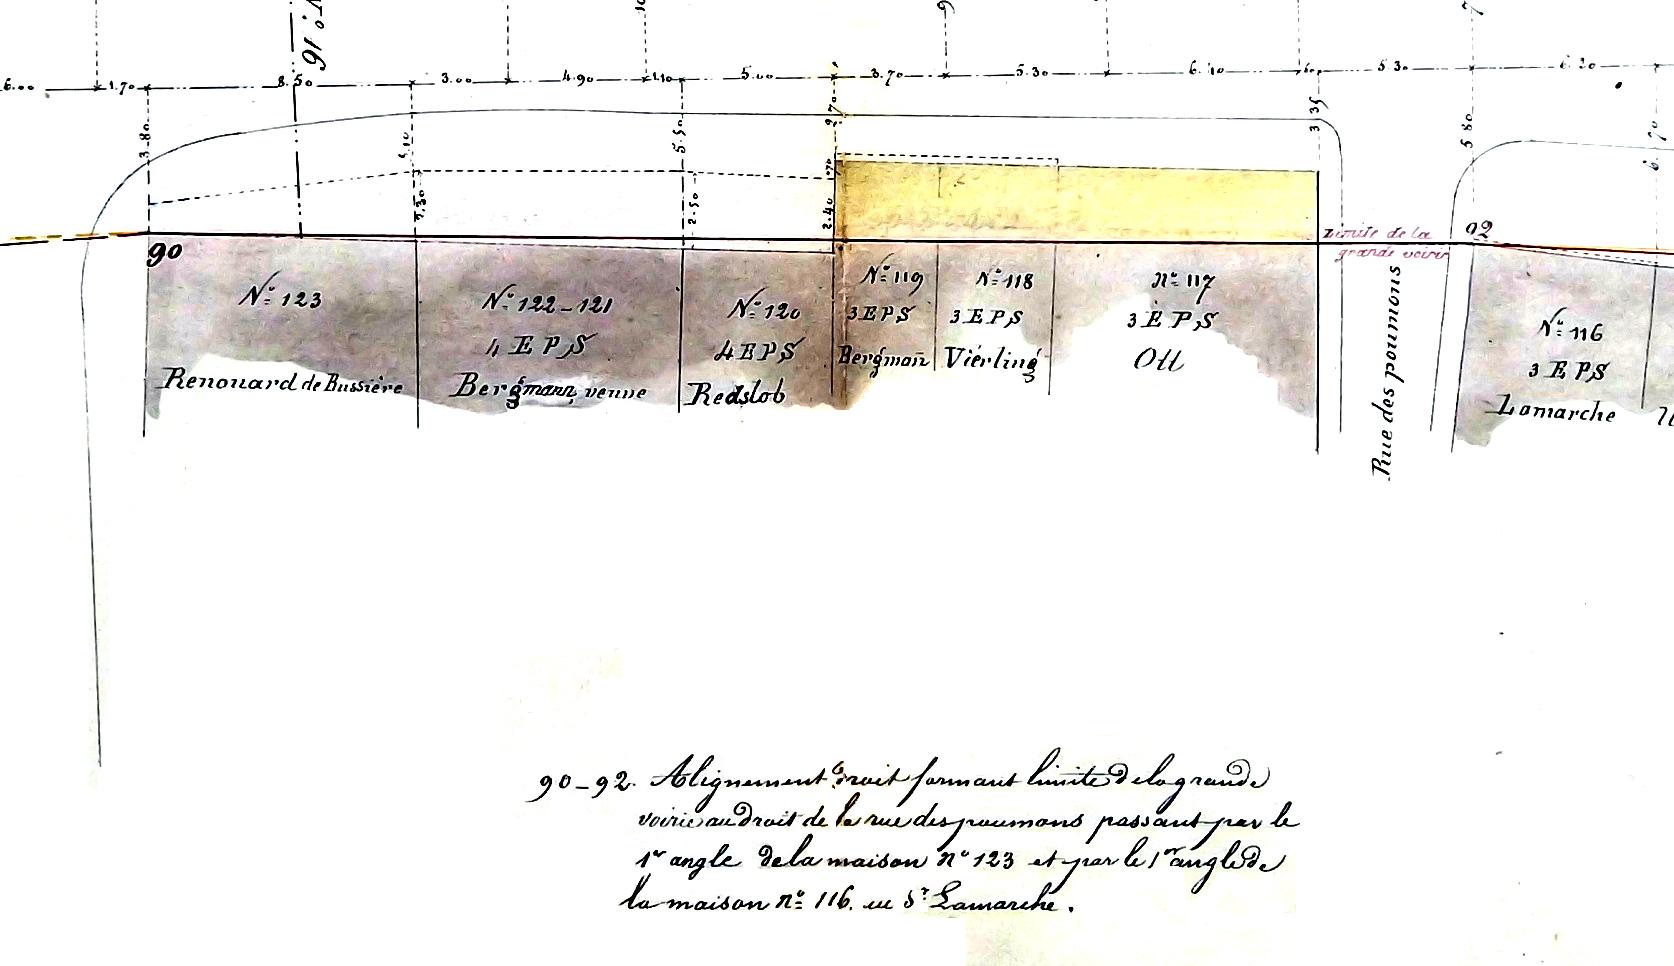 N.º 16
6.00 1.70 8.50 3.00 4.90 1.10 5.00 3.70 5.30 6.10 5.30 6.20
3.80 5.50 2.70 3.35 5.80
2.50 2.40
90 Limite de la 92
grande voirie
Nº 123
Renouard de Bussière
Nº 122-121
4 EPS
Bergmann, veuve
Nº 120
4 EPS
Redslob
Nº 119
3 EPS
Bergman
Nº 118
3 EPS
Vierling
nº 117
3 E P S
Ott
Rue des poumons
Nº 116
3 E PS
Lamarche
90-92. Alignement droit formant limite de la grande
voirie au droit de la rue des poumons passant par le
1er angle de la maison nº 123 et par le 1er angle de
la maison nº 116. au Sr Lamarche.